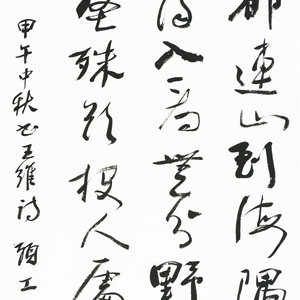 都連山到海隅
靄入看無分野
壑殊欲投人處
甲午中秋書王維詩